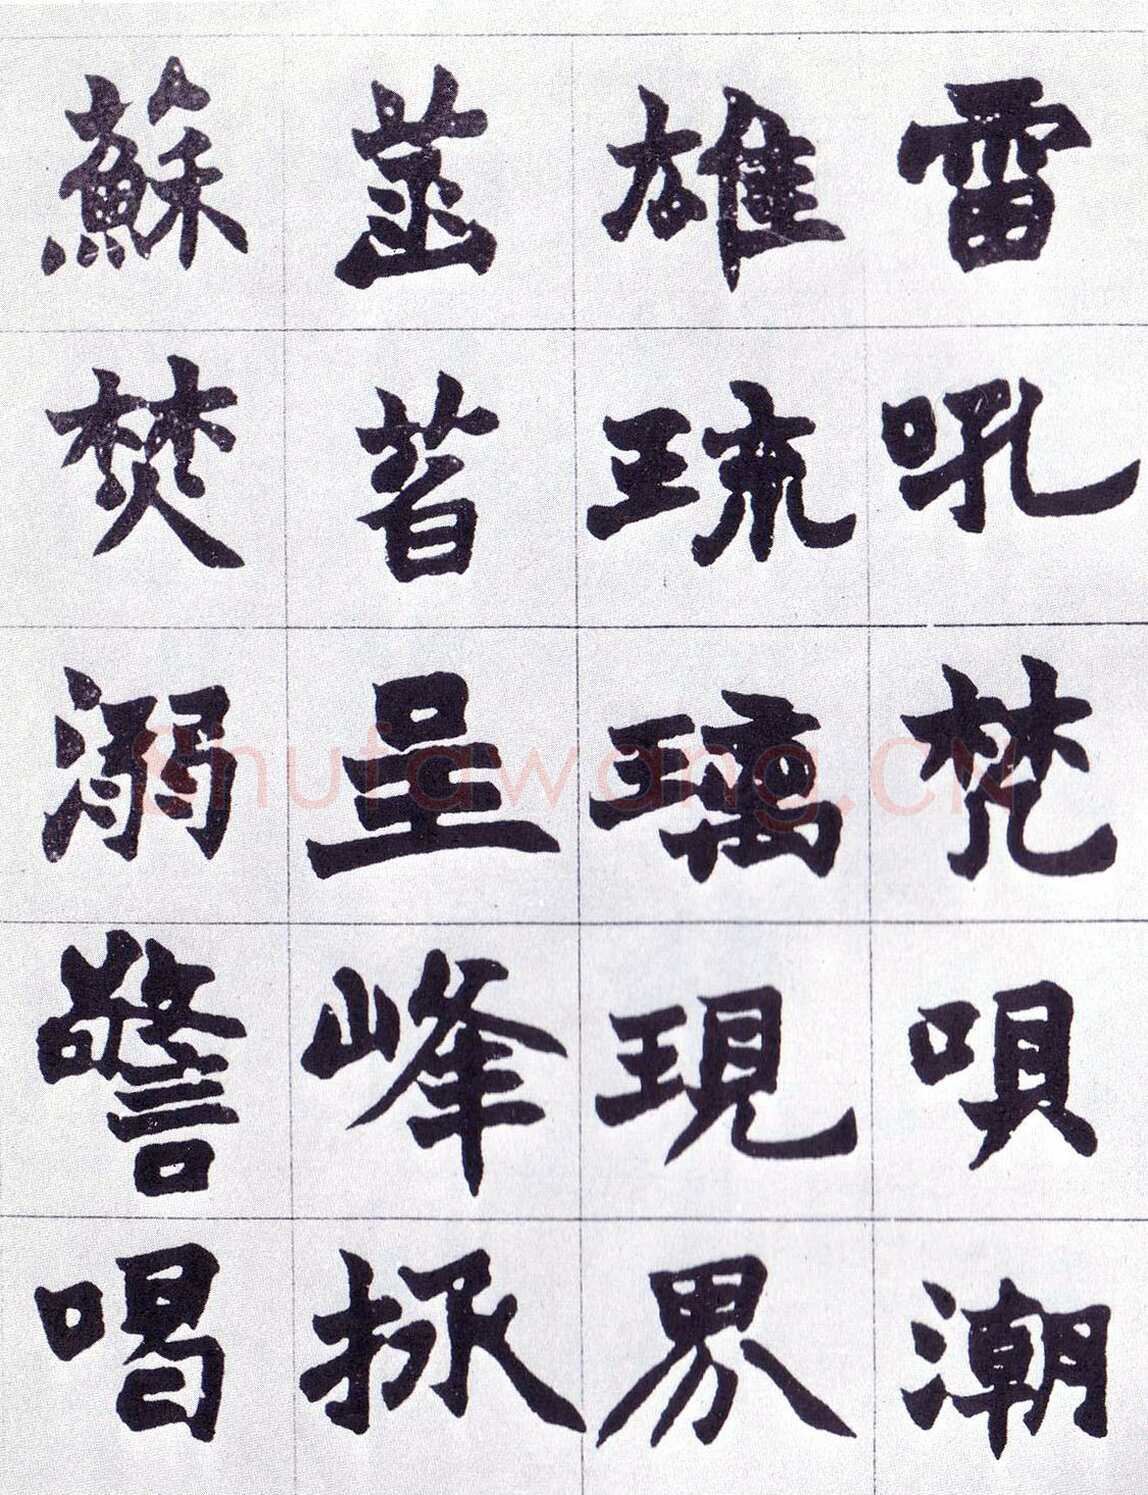 雷吼梵唄潮
雄琉璃現界
莖苕呈峰拯
蘇焚溺警喝
Shufawang.CN